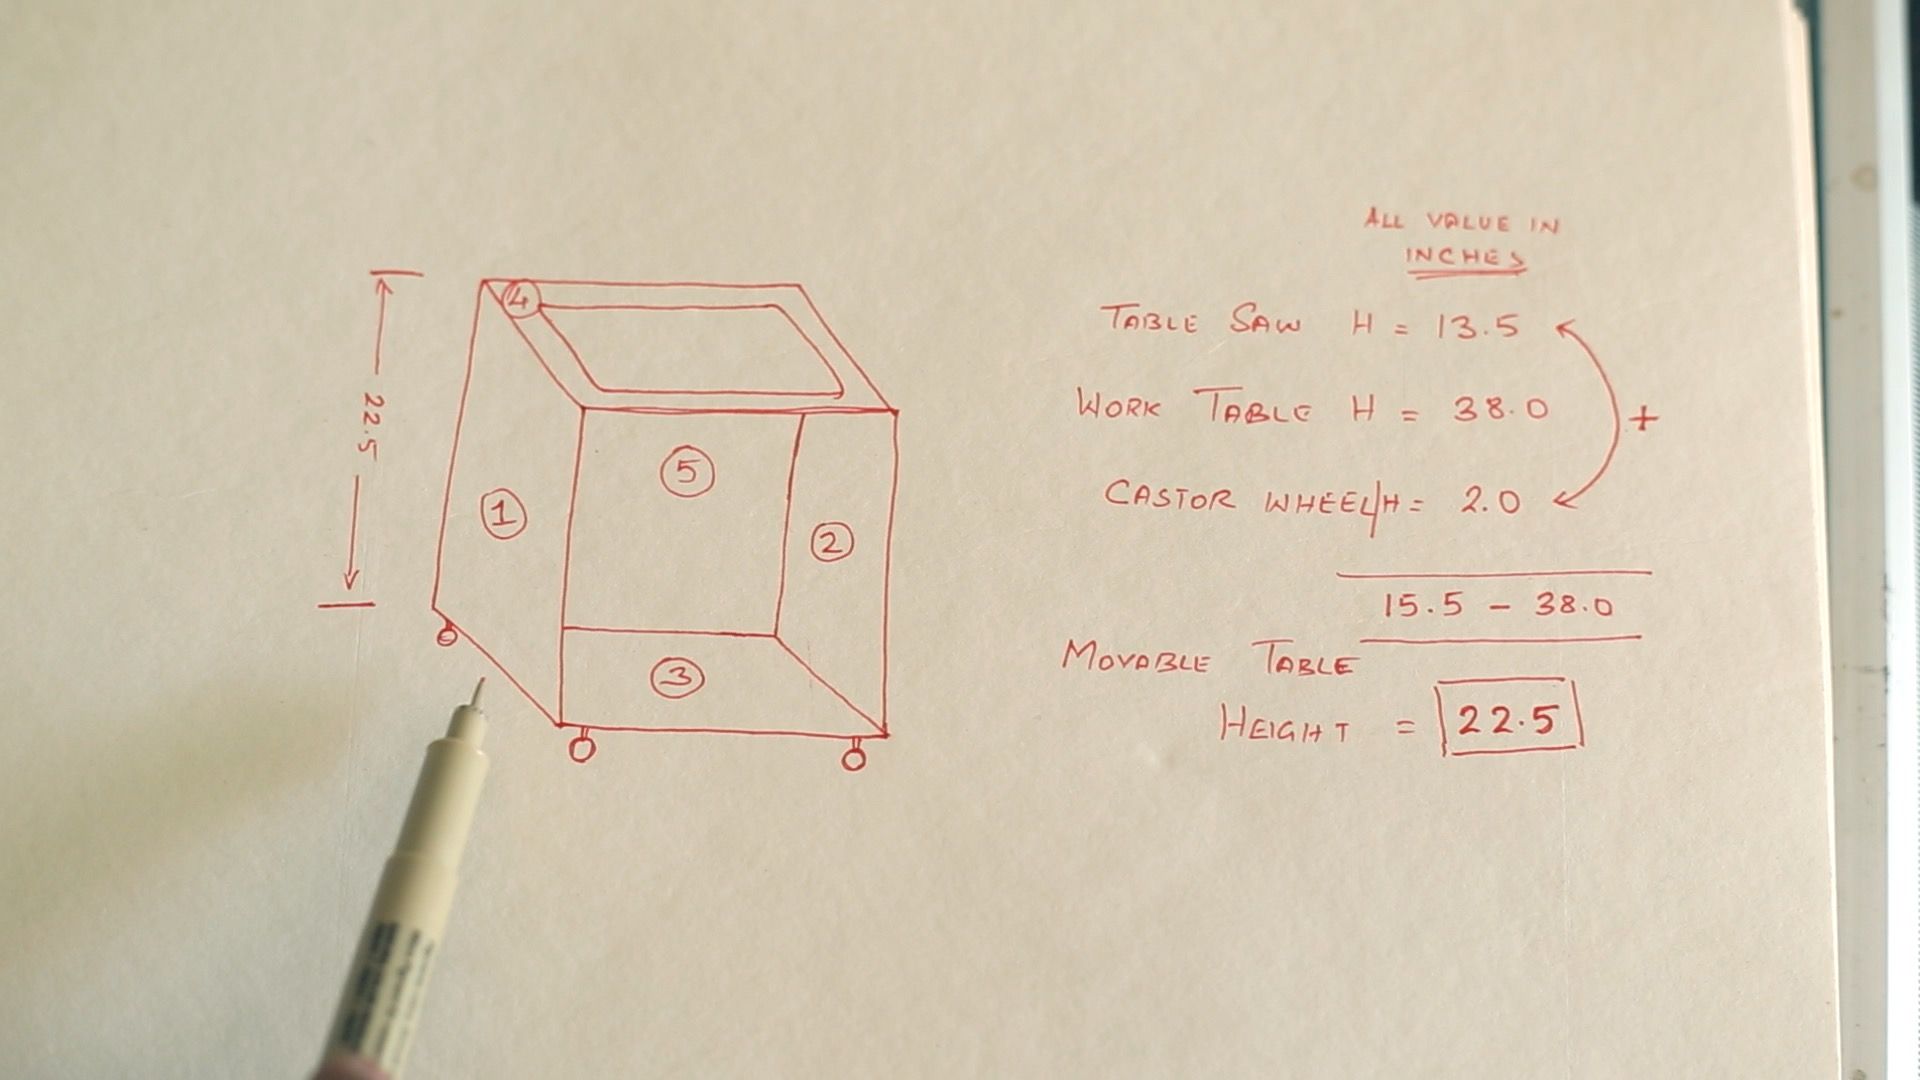 ALL VALUE IN
INCHES
TABLE SAW H = 13.5
WORK TABLE H = 38.0
+
CASTOR WHEEL/H = 2.0
15.5 - 38.0
MOVABLE TABLE
HEIGHT = 22.5
22.5
4
5
1
2
3